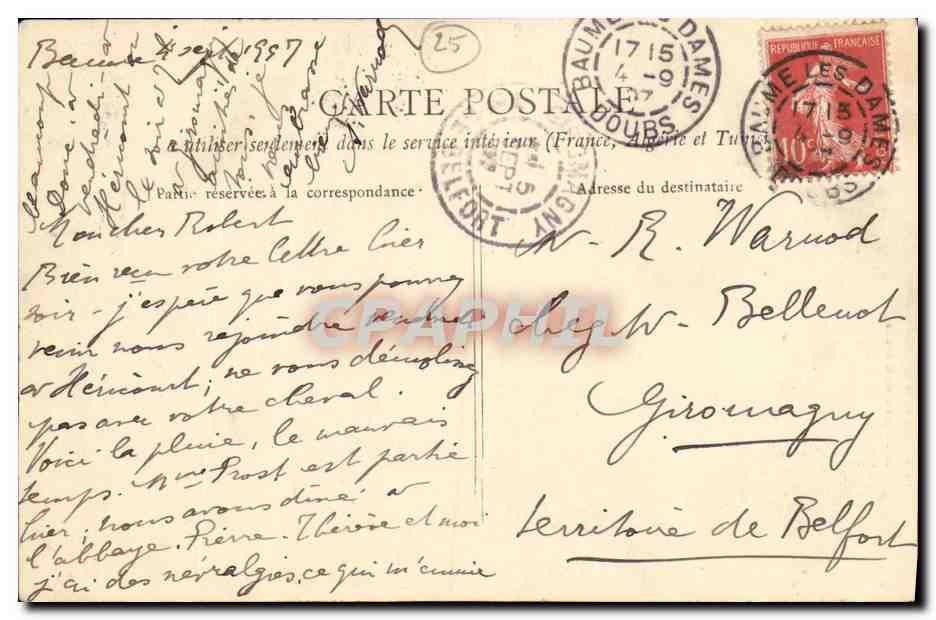 Baume 4 sept 1907
25
BAUME LES DAMES
17 15
4 - 9
07
DOUBS
REPUBLIQUE FRANÇAISE
10
BAUME LES DAMES
17 15
4 - 9
DOUBS
CARTE POSTALE
à utiliser seulement dans le service intérieur (France, Algérie et Tunisie)
Partie réservée à la correspondance
Adresse du destinataire
GIROMAGNY
5
SEPT
BELFORT
Mon cher Robert
Bien reçu votre lettre hier
soir - j'espère que vous pourrez
venir nous rejoindre vendredi
à Héricourt; ne vous démolissez
pas avec votre cheval.
Voici la pluie, le mauvais
temps. Mme Prost est partie
hier; nous avons dîné à
l'abbaye. Pierre. Thérèse et moi
j'ai des névralgies, ce qui m'ennuie
beaucoup
Donc à
vendredi à
Héricourt
le soir et
à Giromagny
amitiés à
tous, je
vous
embrasse
Warnod
M. R. Warnod
chez M. Bellenot
Giromagny
territoire de Belfort
CPAPHIL